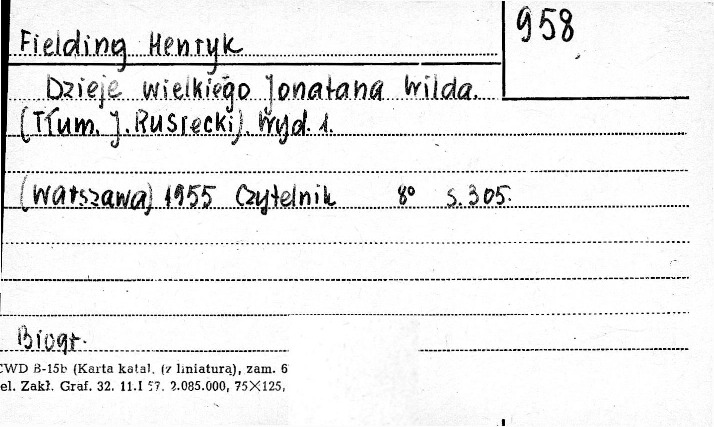 958
Fielding Henryk
Dzieje wielkiego Jonatana Wilda.
(Tłum. J. Rusiecki). Wyd. 1.
(Warszawa) 1955 Czytelnik 8° s. 305.
Biogr.
CWD B-15b (Karta katal. (z liniaturą), zam. 6
el. Zakł. Graf. 32. 11.I 57. 2.085.000, 75×125,